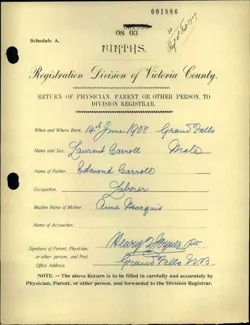 001886
08 03
Schedule A.
BIRTHS.
Registration Division of Victoria County.
RETURN OF PHYSICIAN, PARENT, OR OTHER PERSON, TO
DIVISION REGISTRAR.
When and Where Born, 14th June 1908 Grand Falls
Name and Sex, Laurent Carroll Male
Name of Father, Edmond Carroll
Occupation, Laborer
Maiden Name of Mother, Anne Marquis
Name of Accoucher,
Signature of Parent, Physician
or other person, and Post
Office Address.
Henry
Grand Falls N.B.
NOTE.—The above Return is to be filled in carefully and accurately by
Physician, Parent, or other person, and forwarded to the Division Registrar.